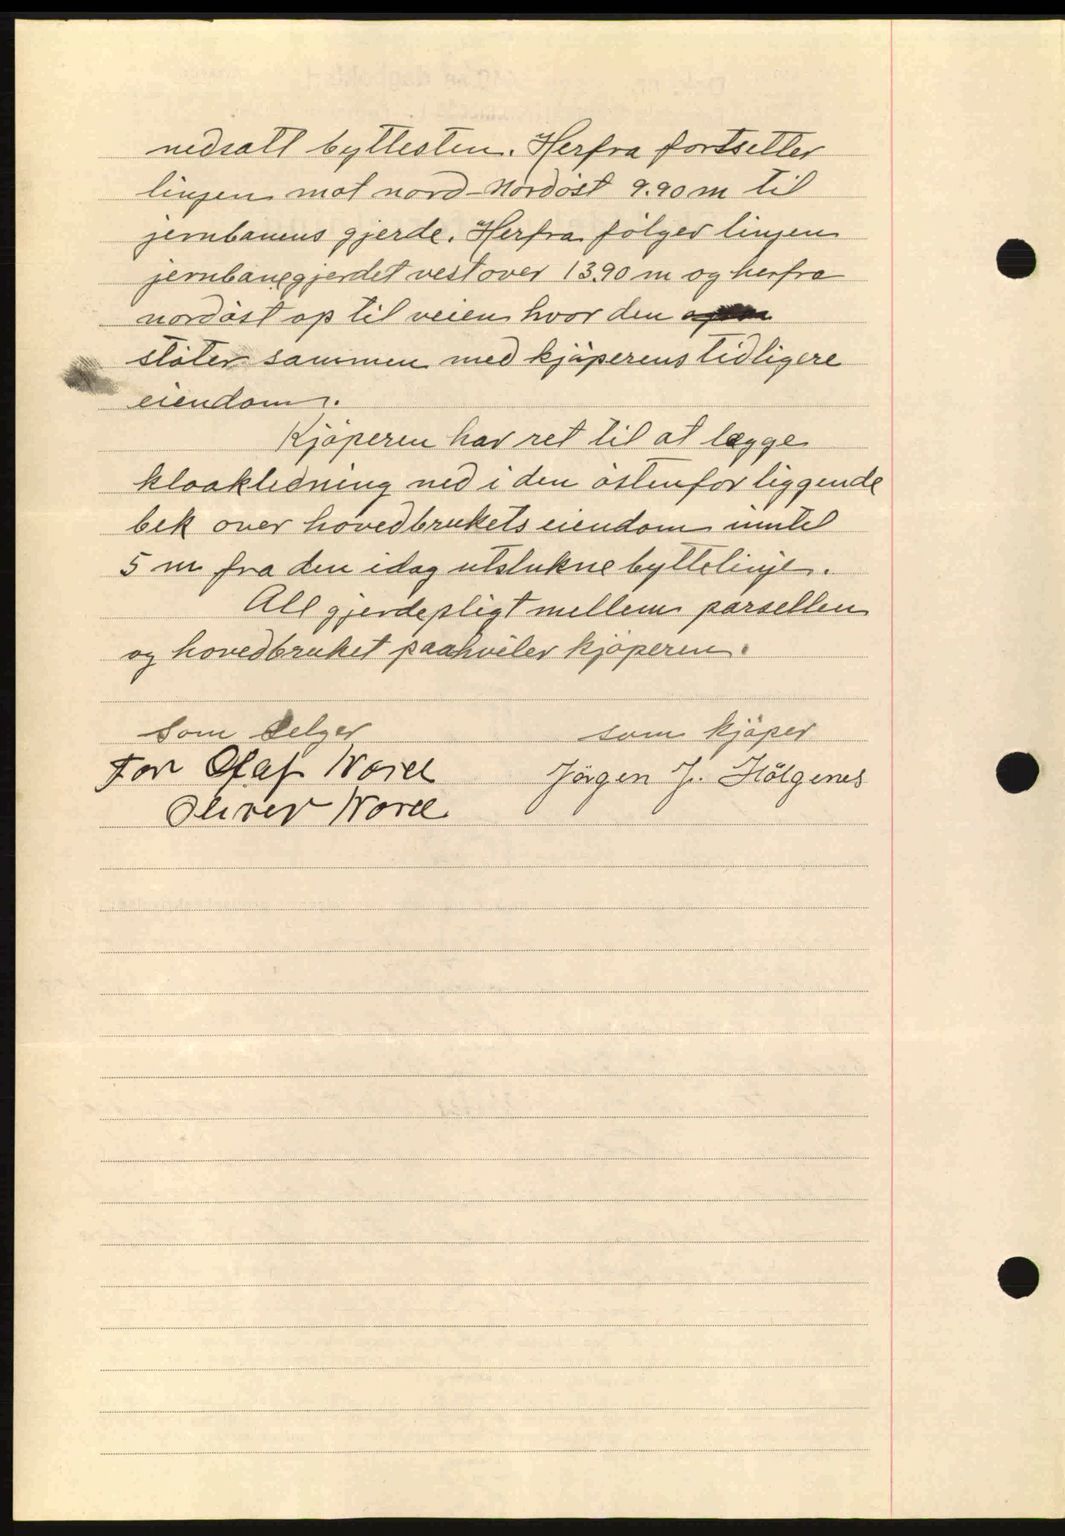 nedsatt byttesten. Herfra fortsetter
linjen mot nord-nordöst 9.90 m til
jernbanens gjerde. Herfra fölger linjen
jernbanegjerdet vestover 13.90 m og herfra
nordöst op til veien hvor den
stöter sammen med kjöperens tidligere
eiendom.
Kjöperen har ret til at lægge
kloakledning ned i den östenfor liggende
bek over hovedbrukets eiendom inntil
5 m fra den idag utstukne byttelinje.
All gjerdepligt mellem parsellen
og hovedbruket paahviler kjöperen.
Som Selger som kjöper
For Olaf Jörgen J.
Oliver